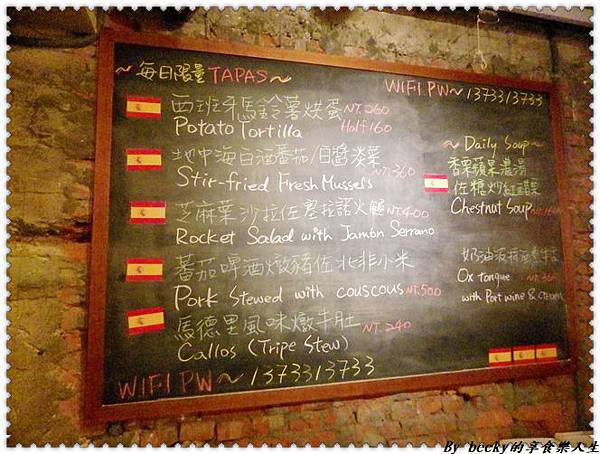 ~每日限量TAPAS~
WIFI PW~1373313733
西班牙馬鈴薯烘蛋 NT.260
Potato Tortilla Half 160
地中海白酒番茄/白醬淡菜
NT.360
Stir-fried Fresh Mussels
芝麻葉沙拉佐塞拉諾火腿 NT.400
Rocket Salad with Jamón Serrano
蕃茄啤酒燉豬佐北非小米
Pork Stewed with couscous NT.500
馬德里風味燉牛肚 NT.240
Callos (Tripe Stew)
WIFI PW~1373313733
~Daily Soup~
香栗蘋果濃湯
佐糖炒紅
Chestnut Soup
奶油
Ox tongue
with Port wine & cream
By becky的享食樂人生